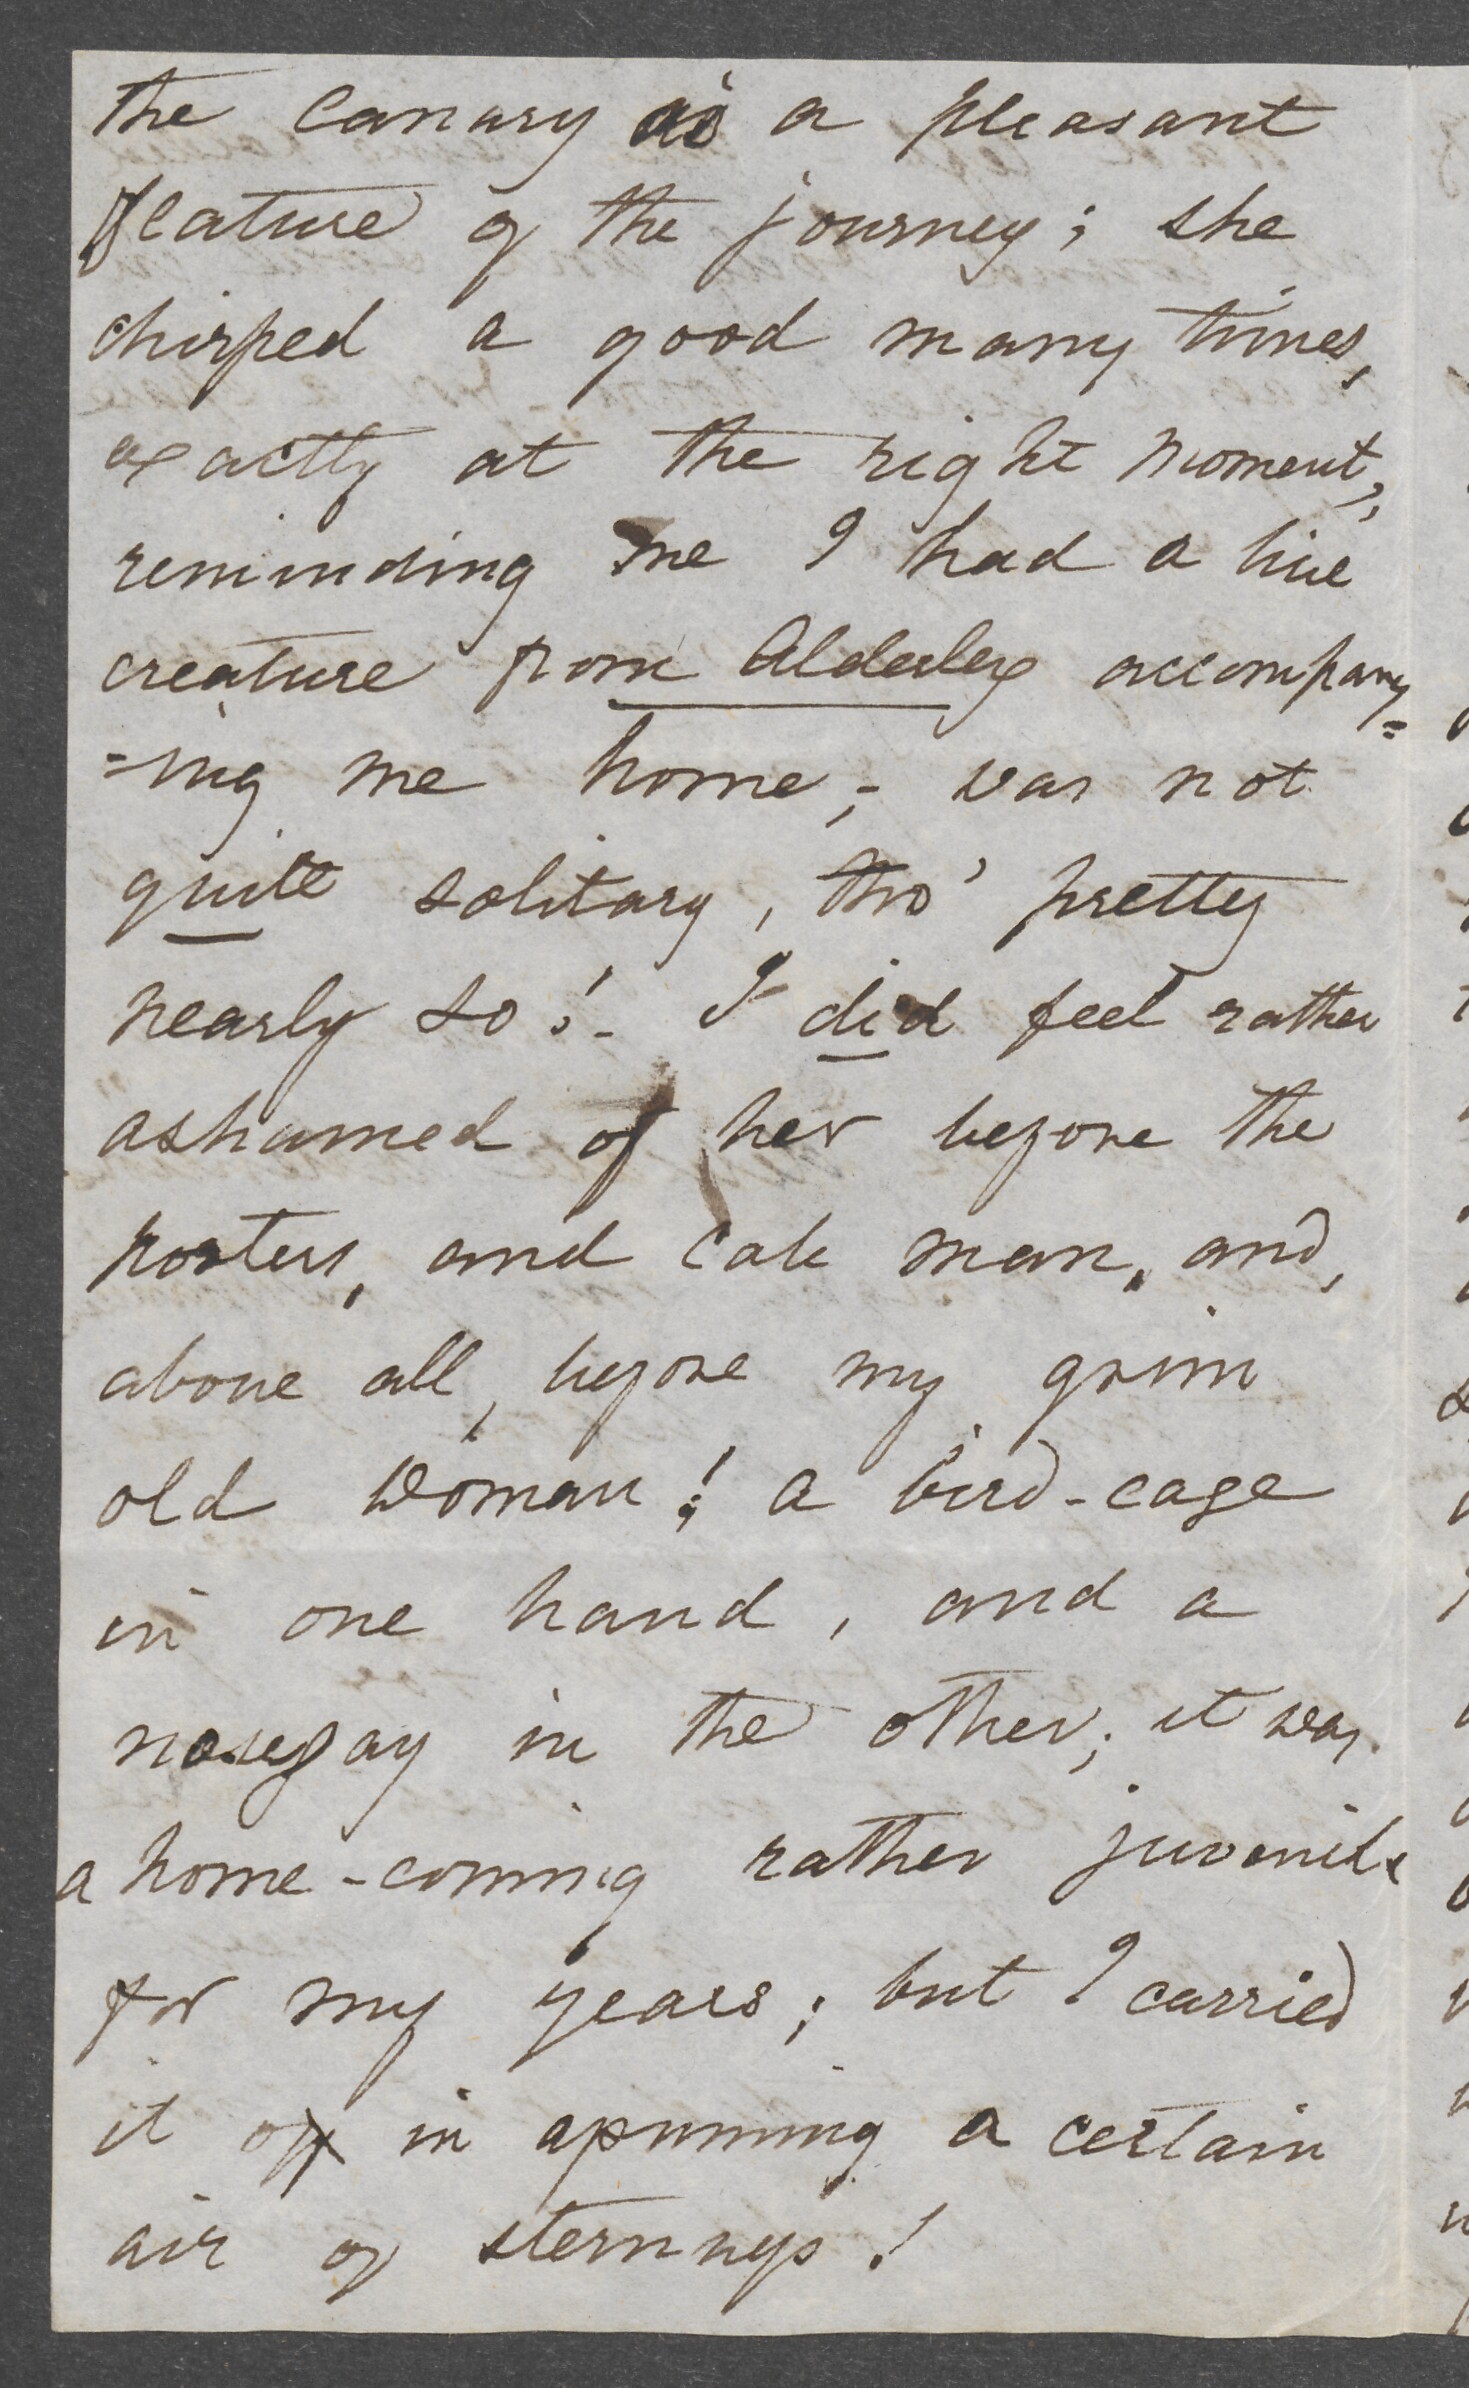 the canary as a pleasant
feature of the journey; she
chirped a good many times,
exactly at the right moment,
reminding me I had a live
creature from Alderley accompany=
=ing me home,- was not
quite solitary, tho' pretty
nearly so!- I did feel rather
ashamed of her before the
porters, and cab man, and,
above all, before my grim
old woman! a bird-cage
in one hand, and a
nosegay in the other; it was
a home-coming rather juvenile
for my years; but I carried
it off in assuming a certain
air of sternness!